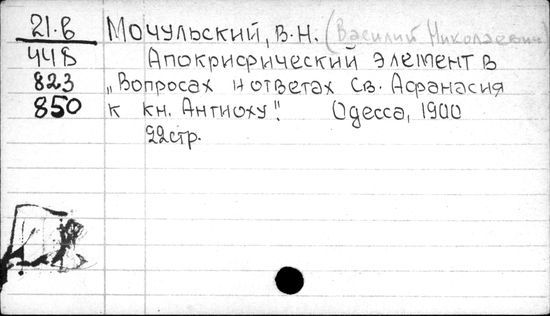 21.в Мочульский, В.Н. (Василий Николаевич)
448 Апокрифический элемент в
823 „Вопросах и ответах Св. Афанасия
850 к кн. Антиоху". Одесса, 1900
22стр.